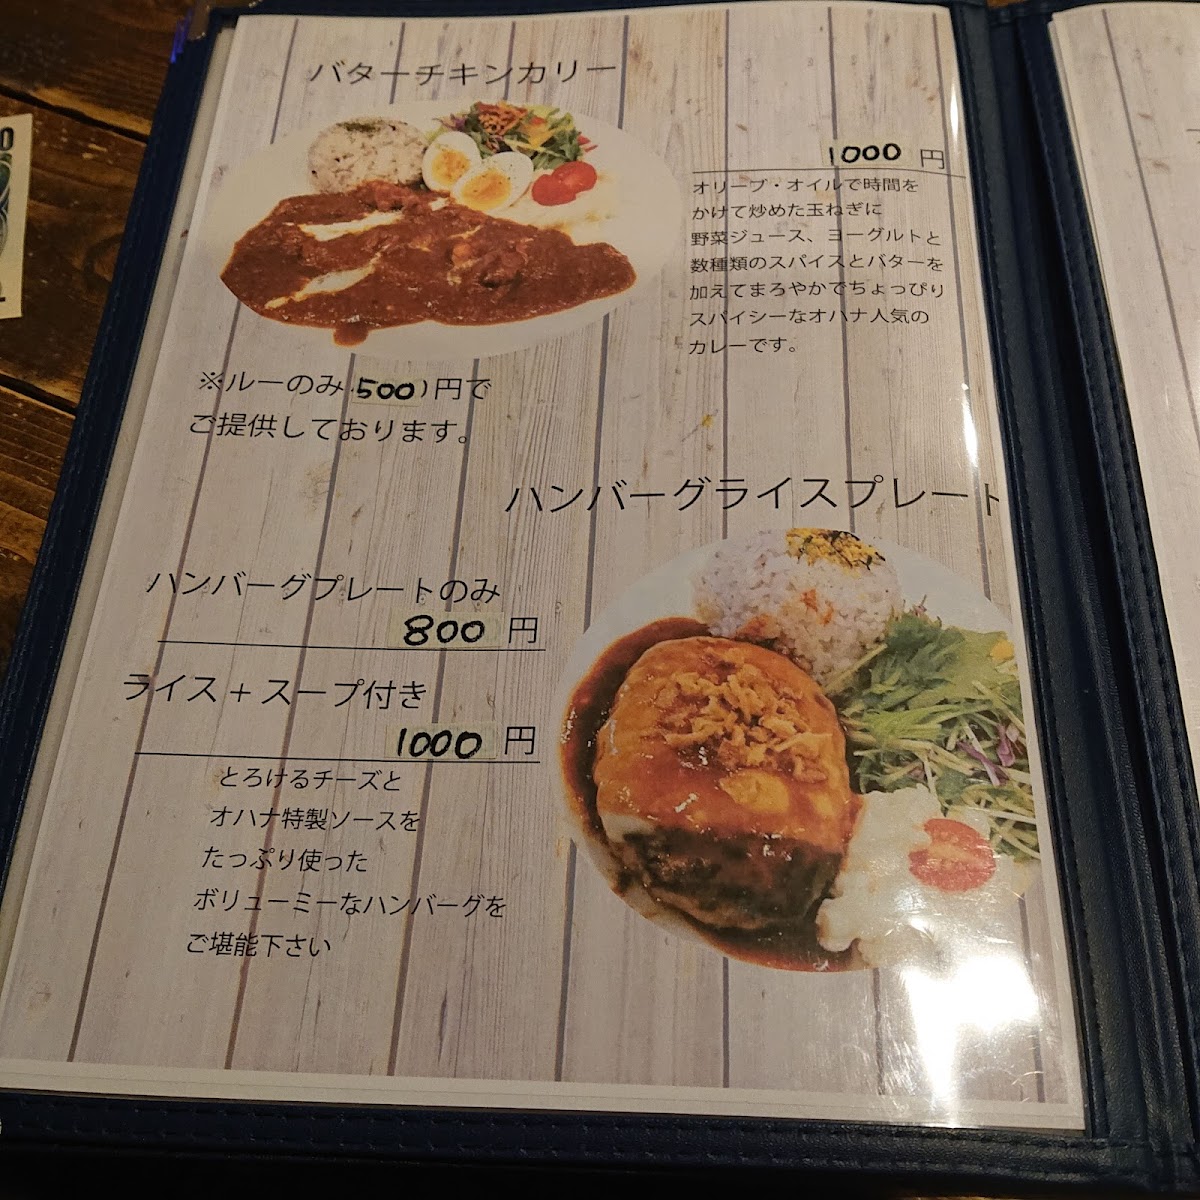 バターチキンカリー
1000 円
オリーブ・オイルで時間を
かけて炒めた玉ねぎに
野菜ジュース、ヨーグルトと
数種類のスパイスとバターを
加えてまろやかでちょっぴり
スパイシーなオハナ人気の
カレーです。
※ルーのみ 500 円で
ご提供しております。
ハンバーグライスプレート
ハンバーグプレートのみ
800 円
ライス + スープ付き
1000 円
とろけるチーズと
オハナ特製ソースを
たっぷり使った
ボリューミーなハンバーグを
ご堪能下さい